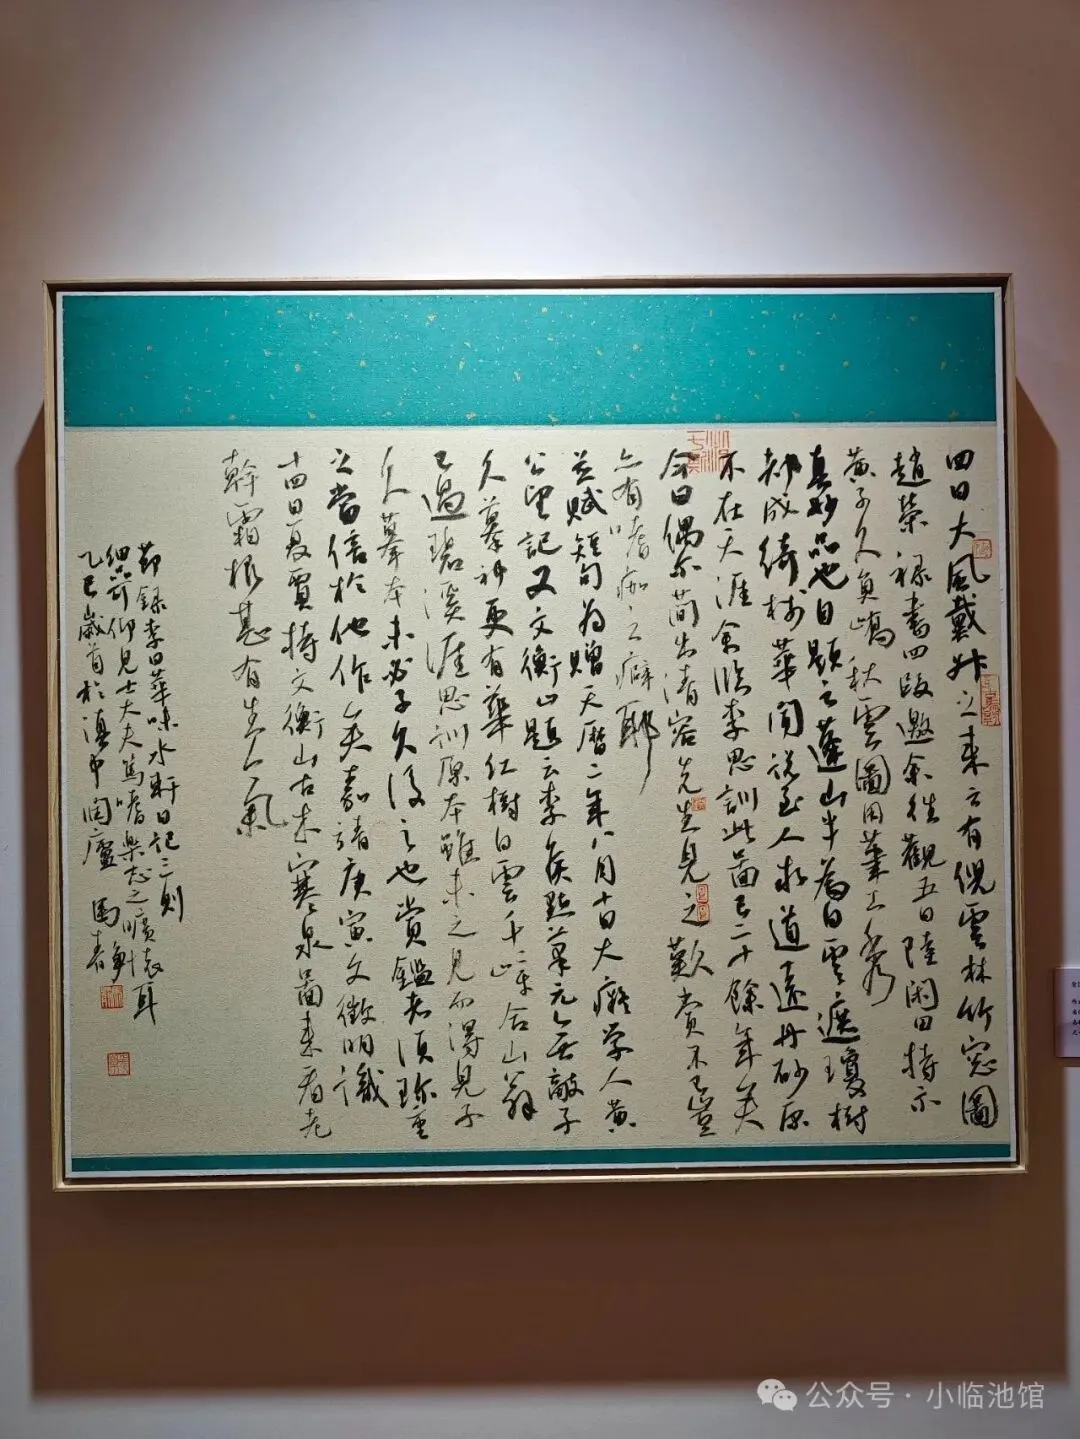 四日大風戴升之来云有倪雲林竹窓圖
趙榮禄書四段邀余往觀五日陸闲田持示
黄子久員嶠秋雲圖用筆工秀
真妙品也自題之蓬山半為白雲遮瓊樹
都成綺樹華闻説至人求道遠丹砂原
不在天涯余臨李思訓此圖已二十餘年矣
今日偶尔簡出清容先生見之歎賞不已豈
亦有嗜痂之癖耶
並賦短句為贈天曆二年八月十日大癡学人黄
公望記又文衡山題云李侯點筆元無敵子
久摹神更有華紅樹白雲千
已過碧溪涯思訓原本雖未之見而得見子
久摹本未必子久後之也賞鑑者須珎重
之當倍於他作矣嘉靖庚寅文徵明識
十四日夏賈持文衡山古木寒泉圖来看老
幹霜根甚有生氣
節録李日華味水軒日記三則
細品可仰見士大夫篤嗜樂志之曠懷耳
乙巳歲首於滬申閏廬 馬春
公众号·小临池馆